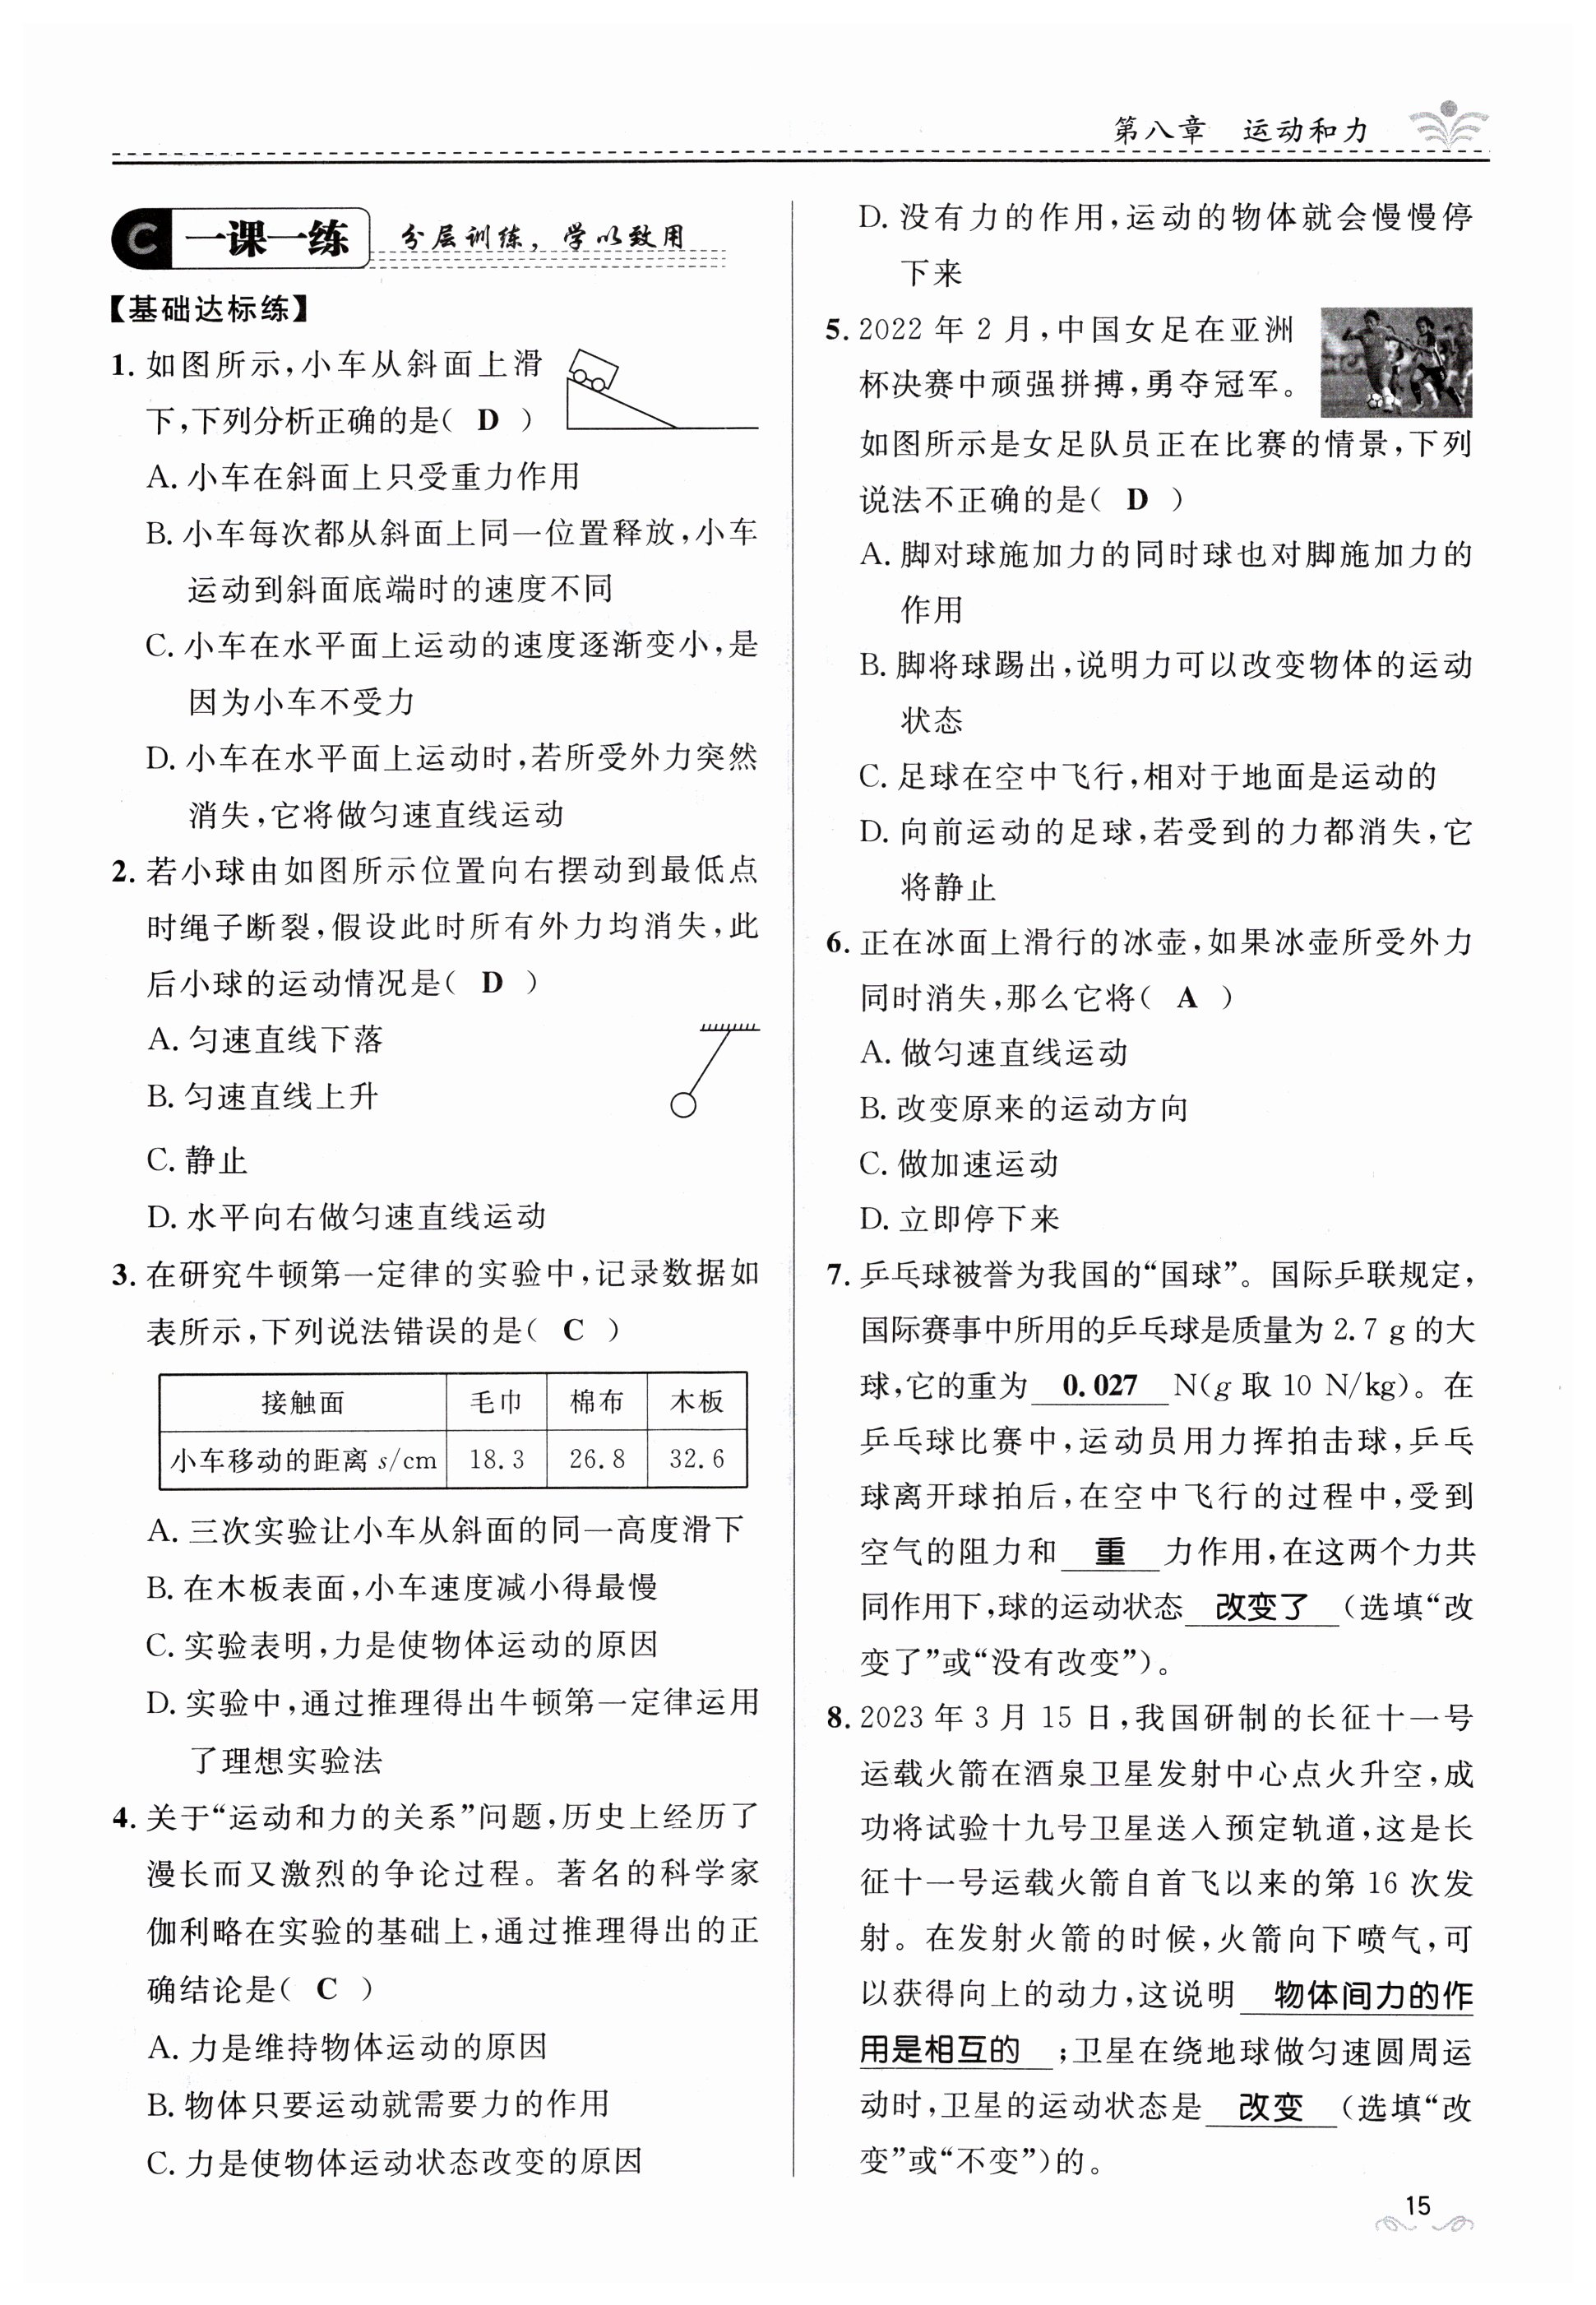 第八章 运动和力
C 一课一练 分层训练，学以致用
【基础达标练】
1. 如图所示，小车从斜面上滑
下，下列分析正确的是( D )
A. 小车在斜面上只受重力作用
B. 小车每次都从斜面上同一位置释放，小车
运动到斜面底端时的速度不同
C. 小车在水平面上运动的速度逐渐变小，是
因为小车不受力
D. 小车在水平面上运动时，若所受外力突然
消失，它将做匀速直线运动
2. 若小球由如图所示位置向右摆动到最低点
时绳子断裂，假设此时所有外力均消失，此
后小球的运动情况是( D )
A. 匀速直线下落
B. 匀速直线上升
C. 静止
D. 水平向右做匀速直线运动
3. 在研究牛顿第一定律的实验中，记录数据如
表所示，下列说法错误的是( C )
接触面 毛巾 棉布 木板
小车移动的距离 s/cm 18.3 26.8 32.6
A. 三次实验让小车从斜面的同一高度滑下
B. 在木板表面，小车速度减小得最慢
C. 实验表明，力是使物体运动的原因
D. 实验中，通过推理得出牛顿第一定律运用
了理想实验法
4. 关于“运动和力的关系”问题，历史上经历了
漫长而又激烈的争论过程。著名的科学家
伽利略在实验的基础上，通过推理得出的正
确结论是( C )
A. 力是维持物体运动的原因
B. 物体只要运动就需要力的作用
C. 力是使物体运动状态改变的原因
D. 没有力的作用，运动的物体就会慢慢停
下来
5. 2022 年 2 月，中国女足在亚洲
杯决赛中顽强拼搏，勇夺冠军。
如图所示是女足队员正在比赛的情景，下列
说法不正确的是( D )
A. 脚对球施加力的同时球也对脚施加力的
作用
B. 脚将球踢出，说明力可以改变物体的运动
状态
C. 足球在空中飞行，相对于地面是运动的
D. 向前运动的足球，若受到的力都消失，它
将静止
6. 正在冰面上滑行的冰壶，如果冰壶所受外力
同时消失，那么它将( A )
A. 做匀速直线运动
B. 改变原来的运动方向
C. 做加速运动
D. 立即停下来
7. 乒乓球被誉为我国的“国球”。国际乒联规定，
国际赛事中所用的乒乓球是质量为 2.7 g 的大
球，它的重为 0.027 N(g 取 10 N/kg)。在
乒乓球比赛中，运动员用力挥拍击球，乒乓
球离开球拍后，在空中飞行的过程中，受到
空气的阻力和 重 力作用，在这两个力共
同作用下，球的运动状态 改变了 (选填“改
变了”或“没有改变”)。
8. 2023 年 3 月 15 日，我国研制的长征十一号
运载火箭在酒泉卫星发射中心点火升空，成
功将试验十九号卫星送入预定轨道，这是长
征十一号运载火箭自首飞以来的第 16 次发
射。在发射火箭的时候，火箭向下喷气，可
以获得向上的动力，这说明 物体间力的作
用是相互的 ；卫星在绕地球做匀速圆周运
动时，卫星的运动状态是 改变 (选填“改
变”或“不变”)的。
15